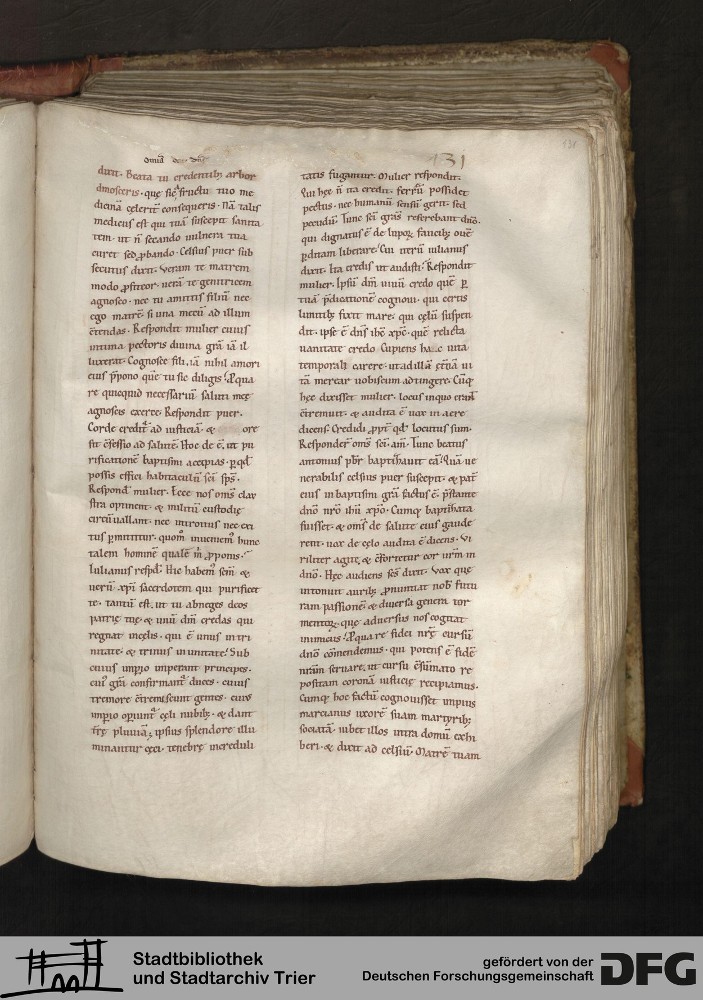 131
131
dixit. Beata tu credentib; arbor
dmosteris. quę sic fructu tuo me
dicinā cęlerit̄ consequeris. Nā talis
medicus est qui tuā suscepit sanita
tem. ut n̄ secando uulnera tua
curet sed ꝓbando. Celsus puer sub
secutus dixit. Veram te matrem
modo ꝓfiteor. uerā te genitricem
agnosco. nec tu amittis filiū nec
ego matrē. si una mecū ad illum
c̄tendas. Respondit mulier cuius
intima pectoris diuina grā iā il
luxerat. Cognosce fili, iā nihil amori
eius p̄pono quē tu sic diligis. Qua
re quicquid necessariū saluti meę
agnoscis exerce. Respondit puer.
Corde credit᷑ ad iusticiā. & ore
fit c̄fessio ad salutē. Hoc de ē. ut pu
rificationē baptismi accipias. ꝑ qđ
possis effici habitaculū sc̄i sp̄s.
Respond mulier. Ecce nos om̄s clau
stra optinent. & militū custodię
circūuallant. nec introitus nec exi
tus ꝑmittitur. quom̄ inueniem᷒ hunc
talem hominē qualē m̄ ꝓponis.
Iulianus resp̄d. Hic habem᷒ sem̄ &
uerū xp̄i sacerdotem qui purificet
te. tantū est. ut tu abneges deos
patrię tuę. & unū dm̄ credas qui
regnat in cęlis. qui ē unus in tri
nitate. & trinus in unitate. Sub
cuius imp̄io imperant principes.
cui᷒ grā confirmant᷑ duces. cuius
tremore c̄tremescunt gentes. cuius
imp̄io oꝑiunt᷑ cęli nubib;. & dant
tr̄ę pluuiā. ipsius splendore illu
minantur cęci. tenebrę increduli
tatis fugantur. Mulier respondit.
Qui hęc n̄ ita credit. ferrū possidet
pectus. nec humanū sensū gerit. sed
pecudū. Tunc sc̄i grās referebant dn̄o.
qui dignatus ē de lupoꝝ faucib; ouē
ꝑditam liberare. Cui iterū iulianus
dixit. Ita credis ut audisti. Respondit
mulier. Ipsū dm̄ uiuū credo quē ꝑ
tuā p̄dicationē cognoui. qui certis
limitib; fixit mare. qui cęlū suspen
dit. ipse ē dn̄s ih̄c xp̄c. quē relicta
uanitate credo. Cupiens hac uita
temporali carere. ut ad illā ęt̄nā ui
tā merear uobiscum adtingere. Cūq;
hęc dixisset mulier. locus in quo erant
c̄tremuit. & audita ē uox in aere
dicens. Credidi ꝓpt̄ qđ locutus sum.
Responder̄ om̄s sc̄i. am̄. Tunc beatus
antonius p̄br baptizauit eā. Quā ue
nerabilis celsus puer suscepit. & pat̄
eius in baptismi grā factus ē. p̄stante
dn̄o nr̄o ih̄u xp̄o. Cumq; baptizata
fuisset. & om̄s de salute eius gaude
rent. uox de cęlo audita ē dicens. Vi
riliter agite. & c̄fortetur cor ur̄m in
dn̄o. Hęc audiens sc̄s dixit. Vox quę
intonuit aurib; ꝓnuntiat nob̄ futu
ram passionē. & diuersa genera tor
mentoꝝ. quę aduersus nos cogitat
inimicus. Qua re fidei nr̄ę cursū
dn̄o cōmendemus. qui potens ē fidē
nr̄am seruare. ut cursu c̄sūmato re
positam coronā iusticię recipiamus.
Cumq; hoc factū cognouisset impius
marcianus uxorē suam martyrib;
sociatā. iubet illos intra domū exhi
beri. & dixit ad celsū. Matrē tuam
Stadtbibliothek
und Stadtarchiv Trier
gefördert von der
Deutschen Forschungsgemeinschaft
DFG